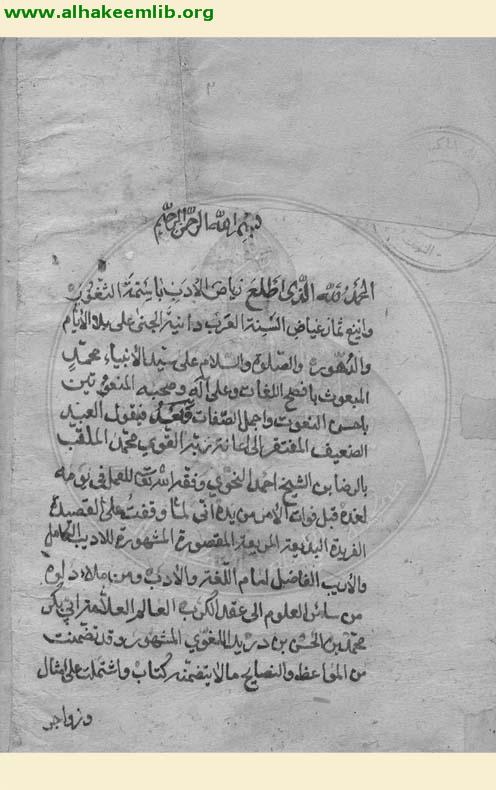 www.alhakeemlib.org
٢
بسم الله الرحمن الرحيم
الحمد لله الذى اطلع رياض الادب باسمة الثغور
واينع ثمار غياض السنة العرب دانية الجنى على ممر الايام
والدهور والصلوة والسلام على سيد الانبياء محمد
المبعوث بافصح اللغات وعلى آله وصحبه المنعوتين
باحسن النعوت واجمل الصفات وبعد فيقول العبد
الضعيف المفتقر الى اعانة ربه القوي محمد الملقب
بالرضا بن الشيخ احمد النحوي وفقه الله تعالى للعمل في يومه
لغده قبل فوات الامر من يده انى لما وقفت على القصيدة
الفريدة البديعة المقصورة المشهورة للاديب الكامل
والاريب الفاضل امام اللغة والادب ومن
من سائر العلوم الى عقد الكرب العالم العلامة ابي بكر
محمد بن الحسن بن دريد اللغوي المشهور وقد تضمنت
من المواعظ والنصايح ما لا يتضمنه كتاب واشتملت على امثال
وزواجر